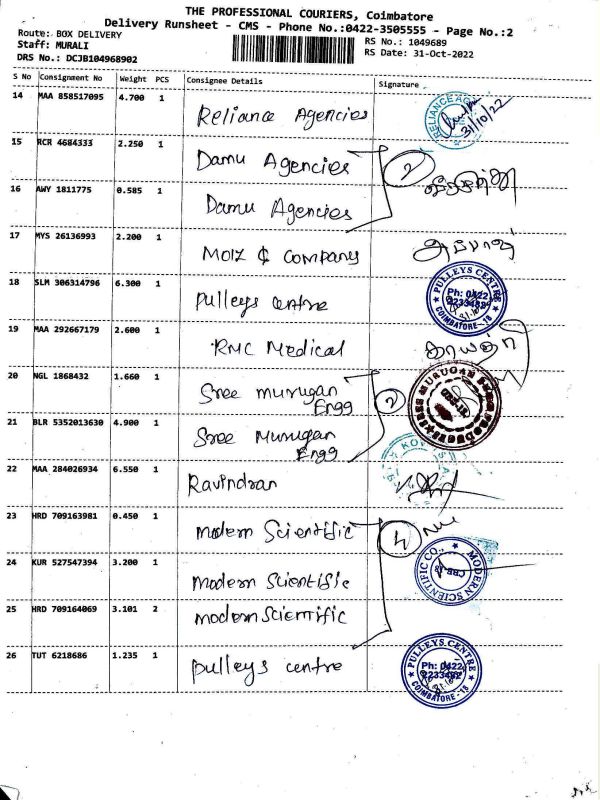 THE PROFESSIONAL COURIERS, Coimbatore
Delivery Runsheet - CMS - Phone No.:0422-3505555 - Page No.:2
Route: BOX DELIVERY
Staff: MURALI
DRS No.: DCJB104968902
RS No.: 1049689
RS Date: 31-Oct-2022
S No Consignment No Weight PCS Consignee Details Signature
14 MAA 858517095 4.700 1 Reliance Agencies
RELIANCE AGE
31/10/22
15 RCR 4684333 2.250 1 Damu Agencies 2
16 AWY 1811775 0.585 1 Damu Agencies
17 MYS 26136993 2.200 1 Moiz & Companys
18 SLM 306314796 6.300 1 Pulleys centre
PULLEYS CENTRE
Ph: 0422
2233482
COIMBATORE - 18
19 MAA 292667179 2.600 1 RMC Medical
20 NGL 1868432 1.660 1 Sree murugan
Engg 2
21 BLR 5352013630 4.900 1 Sree Murugan
Engg
22 MAA 284026934 6.550 1 Ravindran
23 HRD 709163981 0.450 1 modern Scientific 4
24 KUR 527547394 3.200 1 modern Scientific
MODERN SCIENTIFIC CO.,
CBE-18
25 HRD 709164069 3.101 2 modern Scientific
26 TUT 6218686 1.235 1 pulleys centre
PULLEYS CENTRE
Ph: 0422
2233482
COIMBATORE - 18